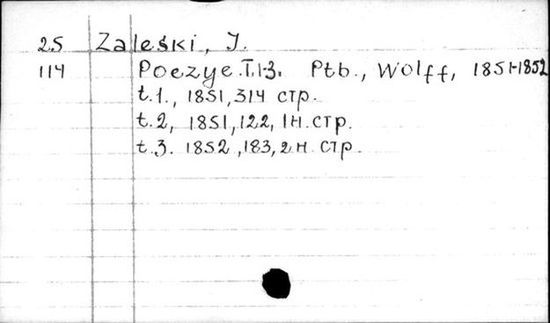 25 Zaleśki, J.
114 Poezye. T.1-3. Ptb., Wolff, 1851-1852
t.1., 1851, 314 стр.
t.2, 1851, 122, 1н. стр.
t.3. 1852, 183, 2н. стр.